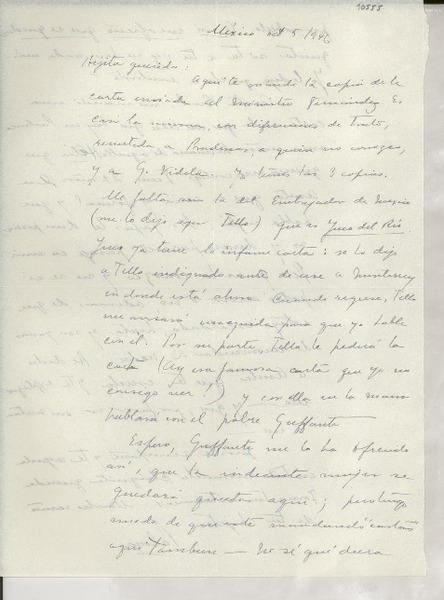 10555
México oct 5 1946
Hijita querida:
Aquí te mando la copia de la
carta enviada al Ministro Fernández
Casi la misma, con diferencias de trato,
a quien no conozco,
y a G. Videla. Ya tienes las 3 copias.
Me falta aún la del Embajador de
(me lo dijo ayer Tello) que es Jesús del Río
ya tiene la infame carta: se lo dijo
a Tello indignado antes de irse a Monterrey
en donde está ahora. Cuando regrese, Tello
me avisará enseguida para que yo hable
con él. Por su parte, Tello le pedirá la
carta (Uy esa famosa carta que yo no
consigo ver!) y con ella en la mano
hablará con el pobre Guffanti
Espero, Guffanti me lo ha ofrecido
así, que la indecente mujer se
quedará quieta aquí; pero tengo
miedo de que esté mandando cartas
aquí también — No sé qué diera